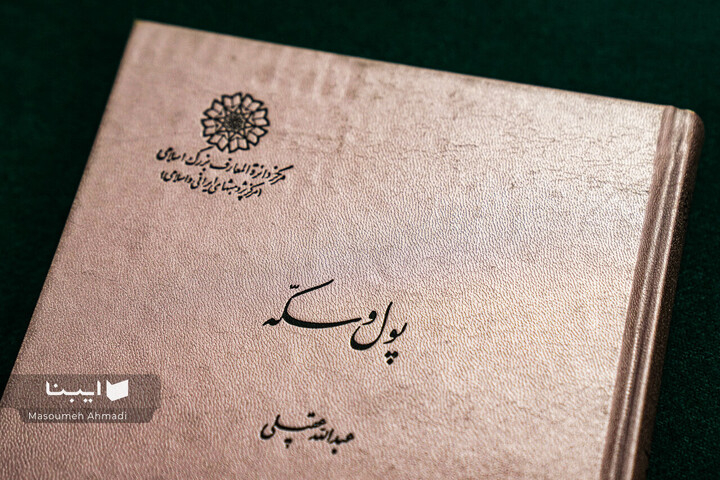 مرکز دائرة المعارف بزرگ اسلامی
(مرکز پژوهشهای ایرانی و اسلامی)
پول و سکّه
عبدالله عقیلی
ایبنا
Masoumeh Ahmadi